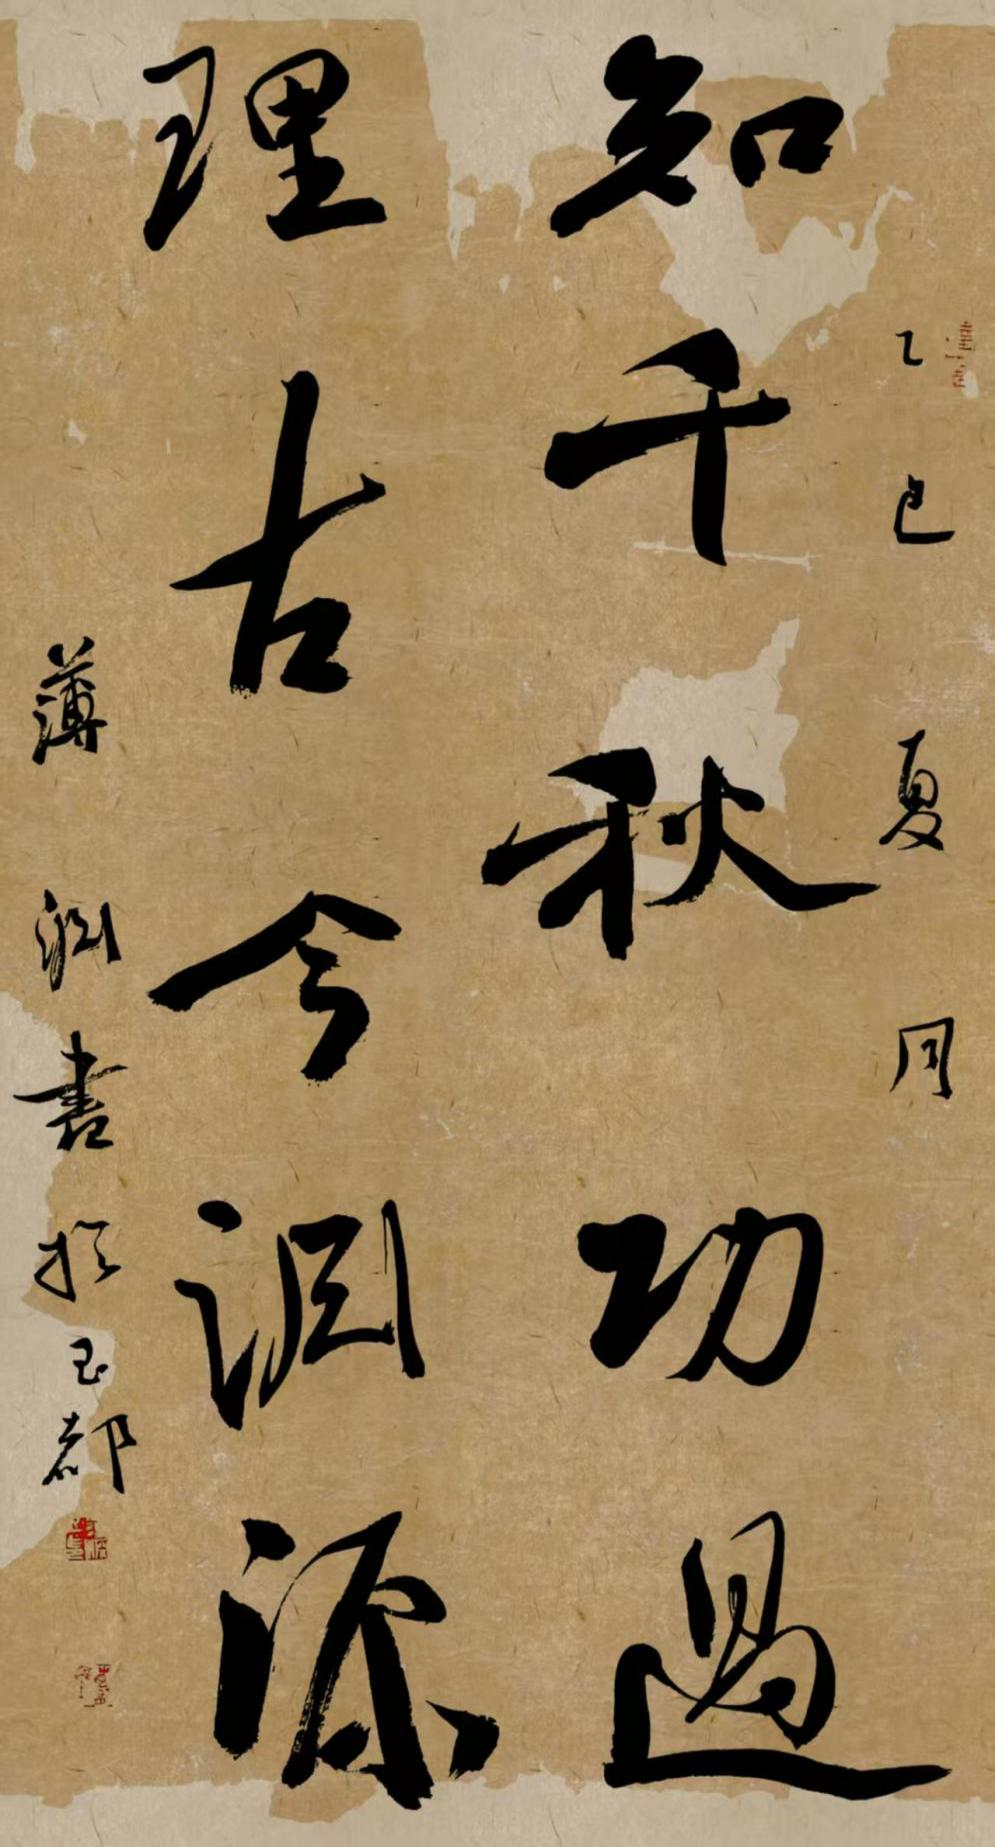 乙巳夏月
知千秋功過
理古今渊源
薄渊書於玉都